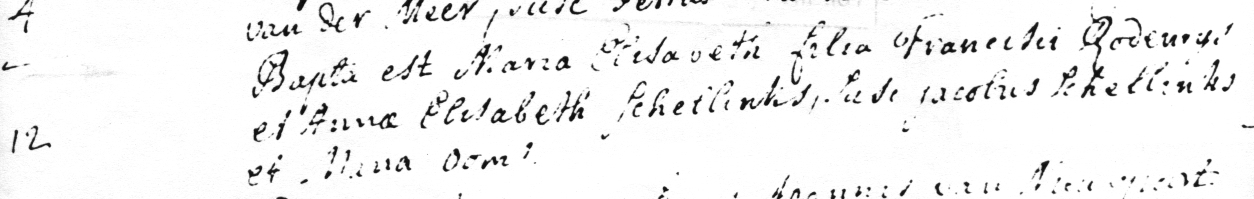 4 van der Meer, suse
Bapta est Maria Elisaveth filia Francisci Rodemys
12 et Annæ Elisabeth Schellinks, suse jacobus Schellinks
et Maria Ooms
Joannis van